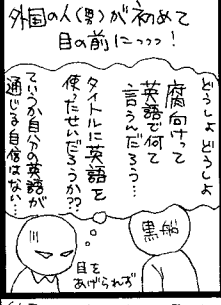 外国の人(男)が初めて
目の前にっっっ!
どうしよ どうしよ
腐向けって
英語で何て
言うんだろう…
タイトルに英語を
使ったせいだろうか??
ていうか自分の英語が
通じる自信はない…
黒船
目を
あげられず